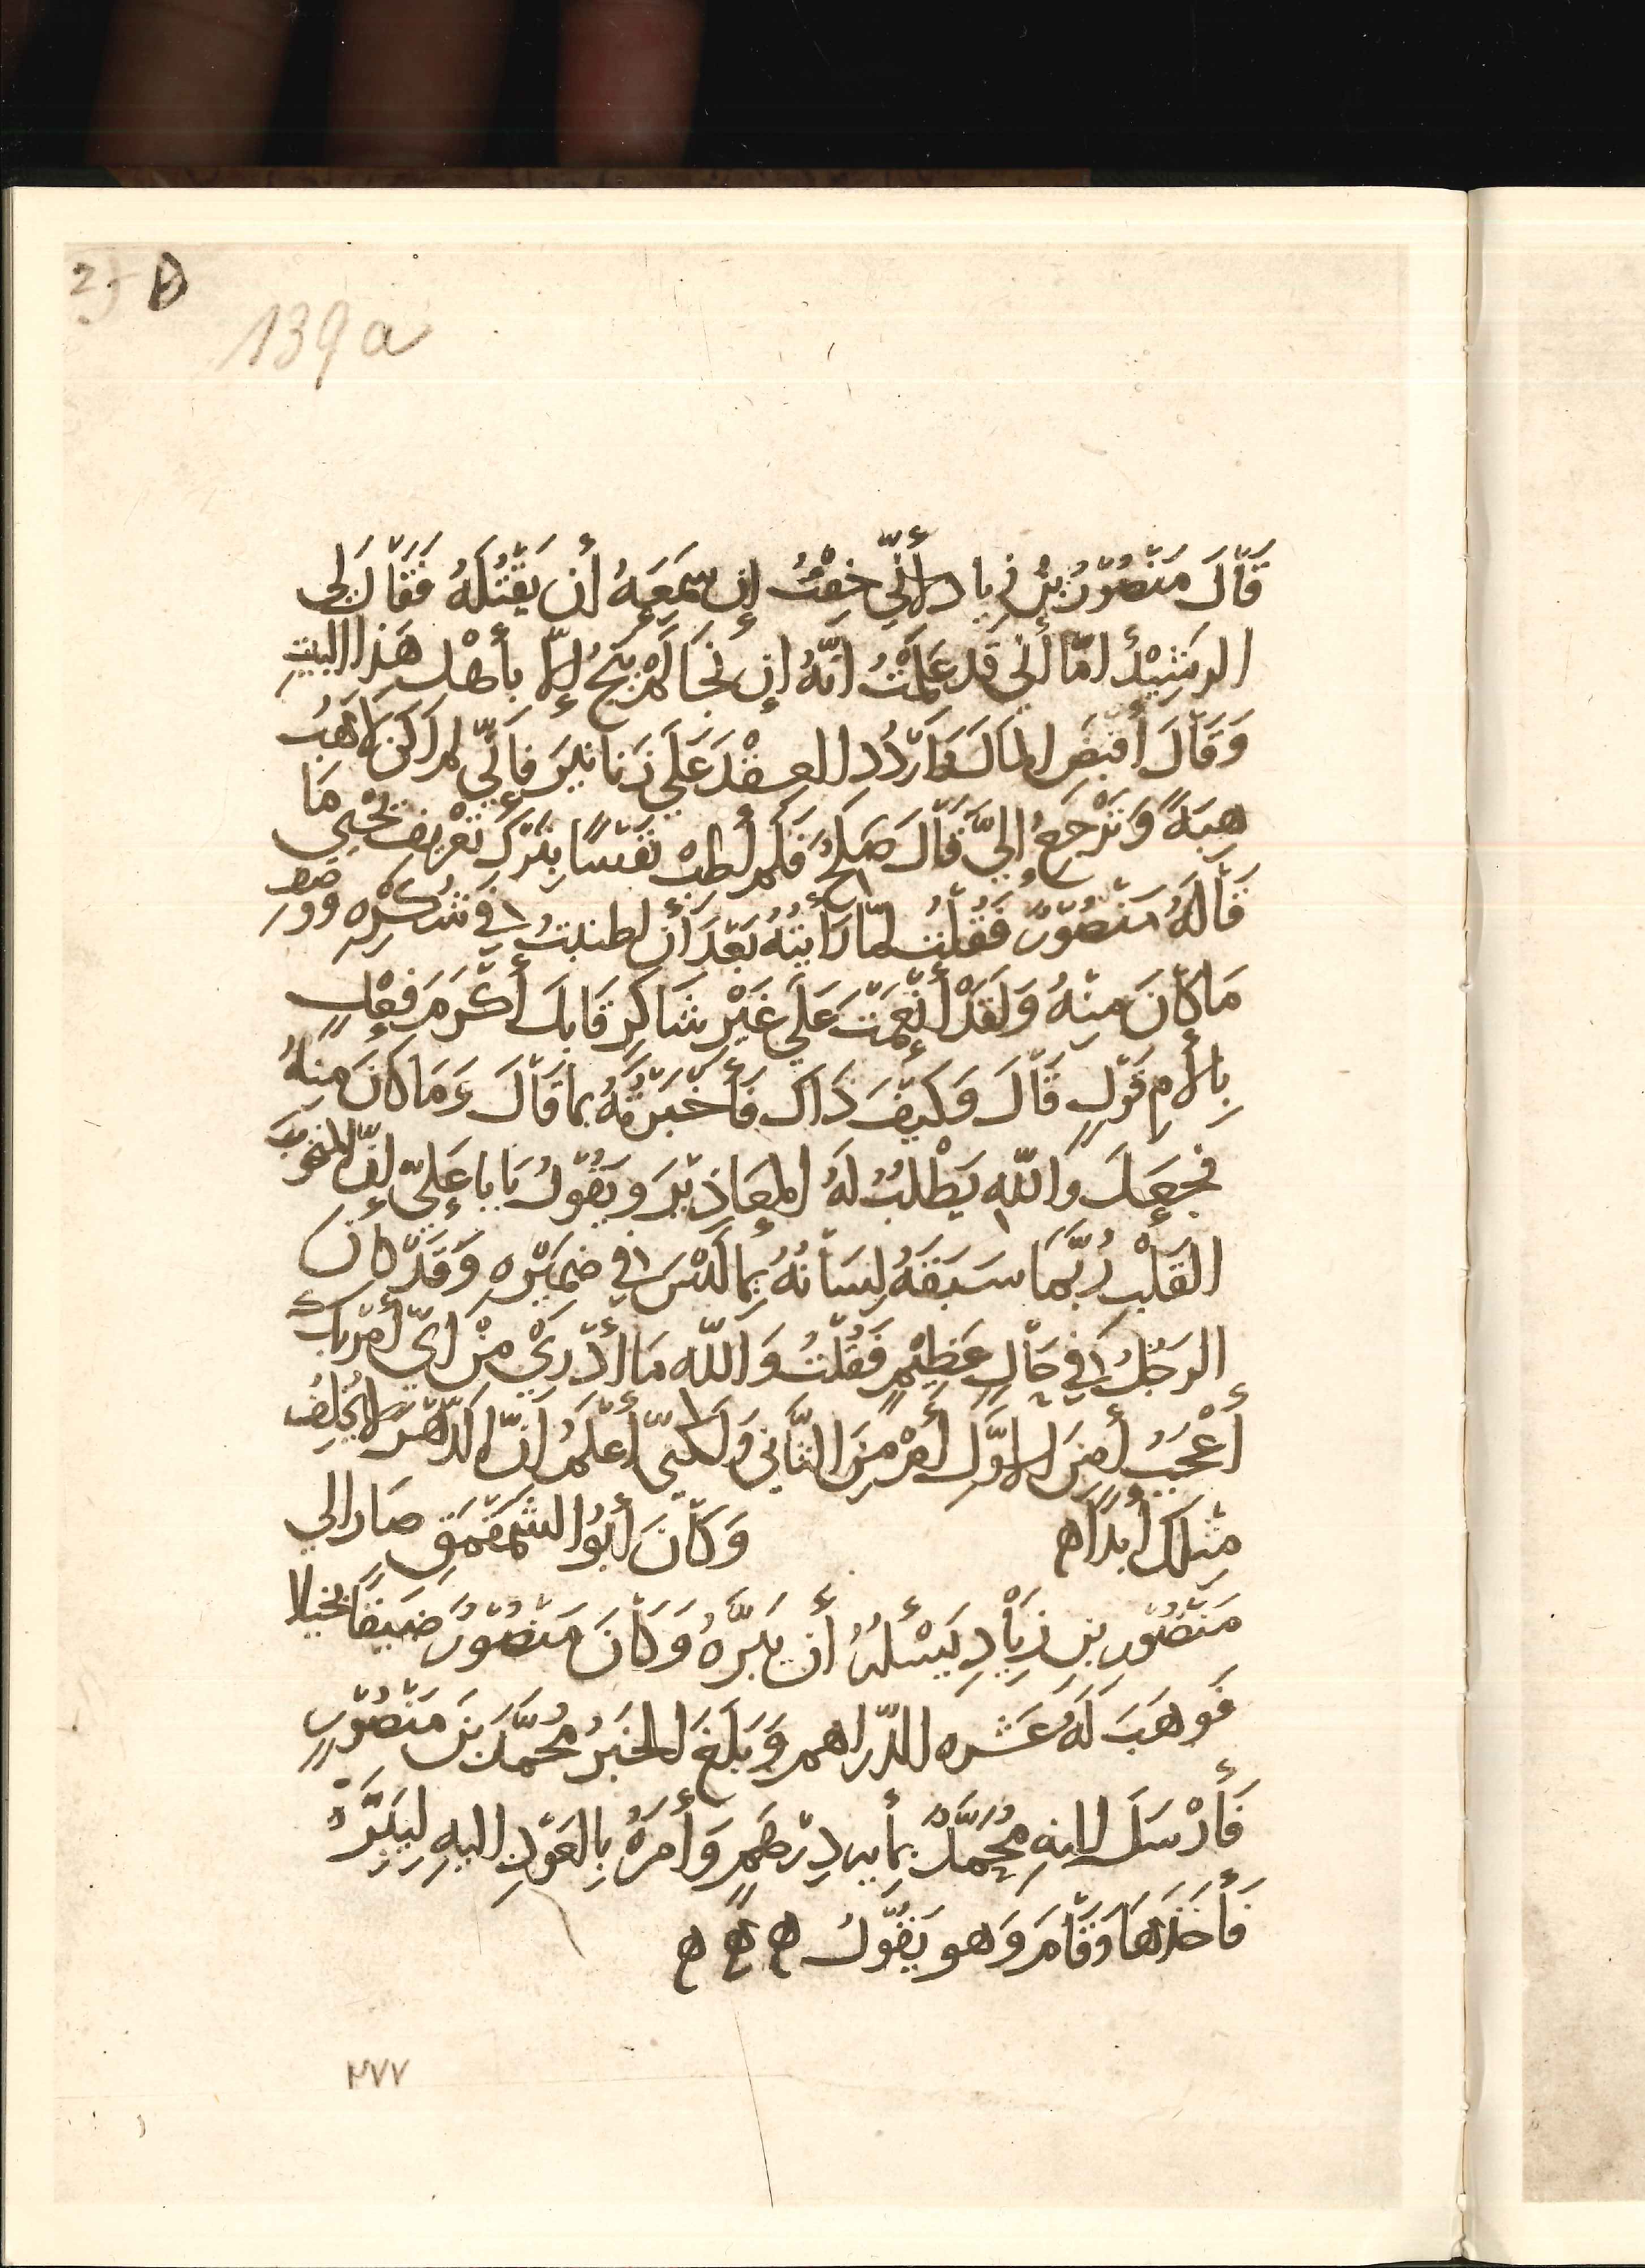 139 a
قَالَ مَنْصُوْرُ بْنُ زِيادٍ لأَنّي خِفْتُ إِن سَمِعَهُ أَن يَقْتُلَهُ فَقَالَ لِي
الرشِيْدُ امّا أَنِّي قَد عَلِمْتُ انّهُ إِن نَجَا لَمْ يَنْجُ إلاّ بأَهْلِ هَذا البيتِ
وَقَالَ أقبَضِ المالَ وَاَرْدُدِ العِقْدَ عَلَي دَنانيْرَ فَاِنّي لم اَكن لاهَبُ
هِبَةً وَتَرْجَعُ إليَّ قَالَ صَلحُ فَلَم أَطِبْ نَفْسًا بِتَرْكِ تَعْرِيفِ يَحْيَي مَا
قَالَهُ مَنْصُوْرٌ فَقُلْتُ لمّا رَأَيْتُهُ بَعْدَ أَن اطنبتُ فِي شُكْرِهِ وَوَصفِ
مَا كَانَ مِنْهُ وَلَقَدْ أَنْعَمْتَ عَلَي غَيْرِ شَاكِرٍ قَابلَ أَكْرَمَ فِعْلٍ
بِالأَمِ قَوْلٍ قَالَ وَكَيْفَ ذَاكَ فَأَخْبَرْتُهُ بما قَالَ وَمَا كانَ مِنهُ
فجَعَلَ وَاللّهِ يَطْلُبُ لَهُ المعَاذِيْرَ وَيَقُوْلُ يَابا عَلِيّ إِنّ المنخوبَ
القَلْبِ رُبَّمَا سَبَقَهُ لِسَانُهُ بِمَا لَيْسَ فِي ضَمِيْرِهِ وَقَدْ كانَ
الرَجُلُ فِي حَالٍ عَظِيْمٍ فَقُلْتُ وَاللّهِ مَا أَدْرِيْ مِنْ ايّ أَمْرَيك
أَعْجَبُ أَمِنَ الاوَّلِ أَمْ مِنَ الثَّاني وَلَكنيّ أَعْلَمُ اَنّ الدَّهْرَ لايُخلِفُ
مِثلكَ أبدًا ه وَكَانَ أَبُوا الشَمَقْمَقِ صَار الي
مَنْصُوْرِ بنِ زِيَادٍ يَسْئَلهُ أن يَبَرَّهُ وَكَانَ مَنصُوْرٌ ضَيّقًا بَخيلا
فَوَهَبَ لَهُ عَشَره الدّراهم وَبَلَغَ الخبَرُ مُحمَّدَ بنَ مَنْصُوْرٍ
فَأَرْسَلَ اليهِ مُحَمَّدٌ بِمأيه دِرْهَمٍ وَأَمَرَهُ بِالعَوْدِ اليهِ لِيَبَرَّهُ
فَأَخَذَهَا وَقَامَ وَهو يَقُوْلُ ه ه ه
٢٧٧